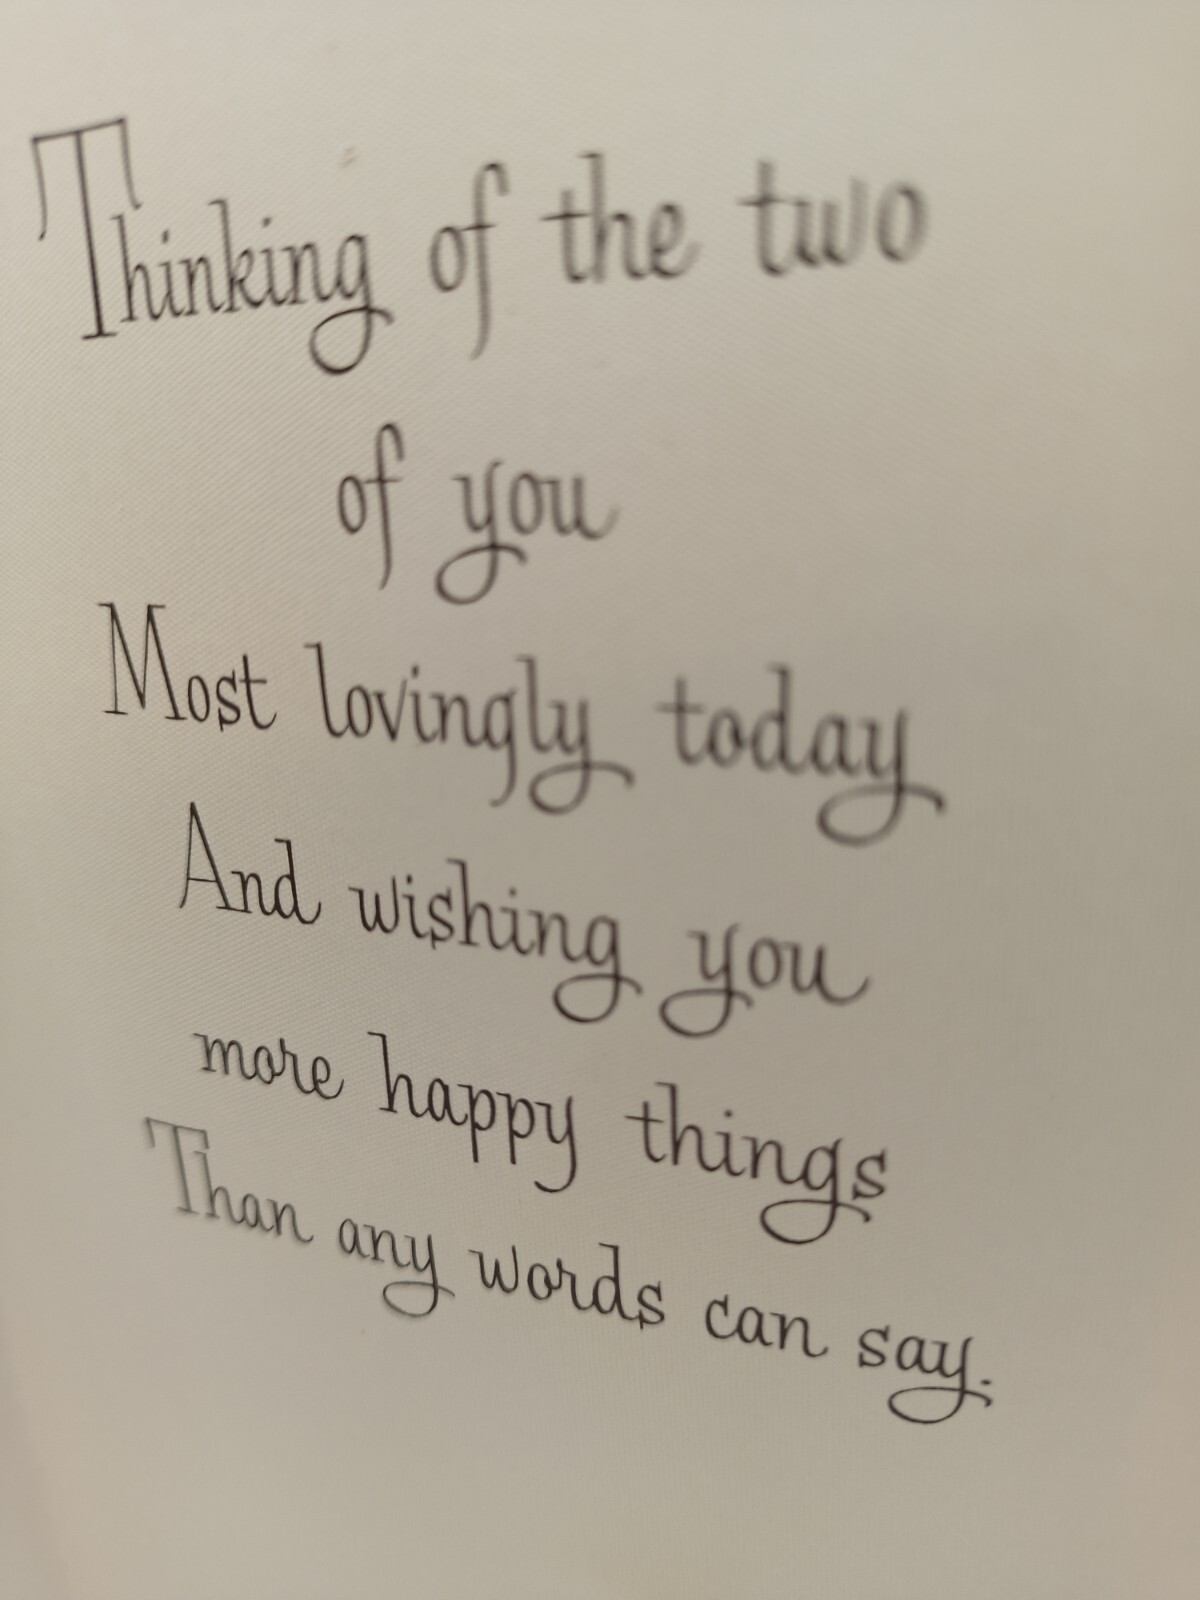 Thinking of the two
of you
Most lovingly today
And wishing you
more happy things
Than any words can say.